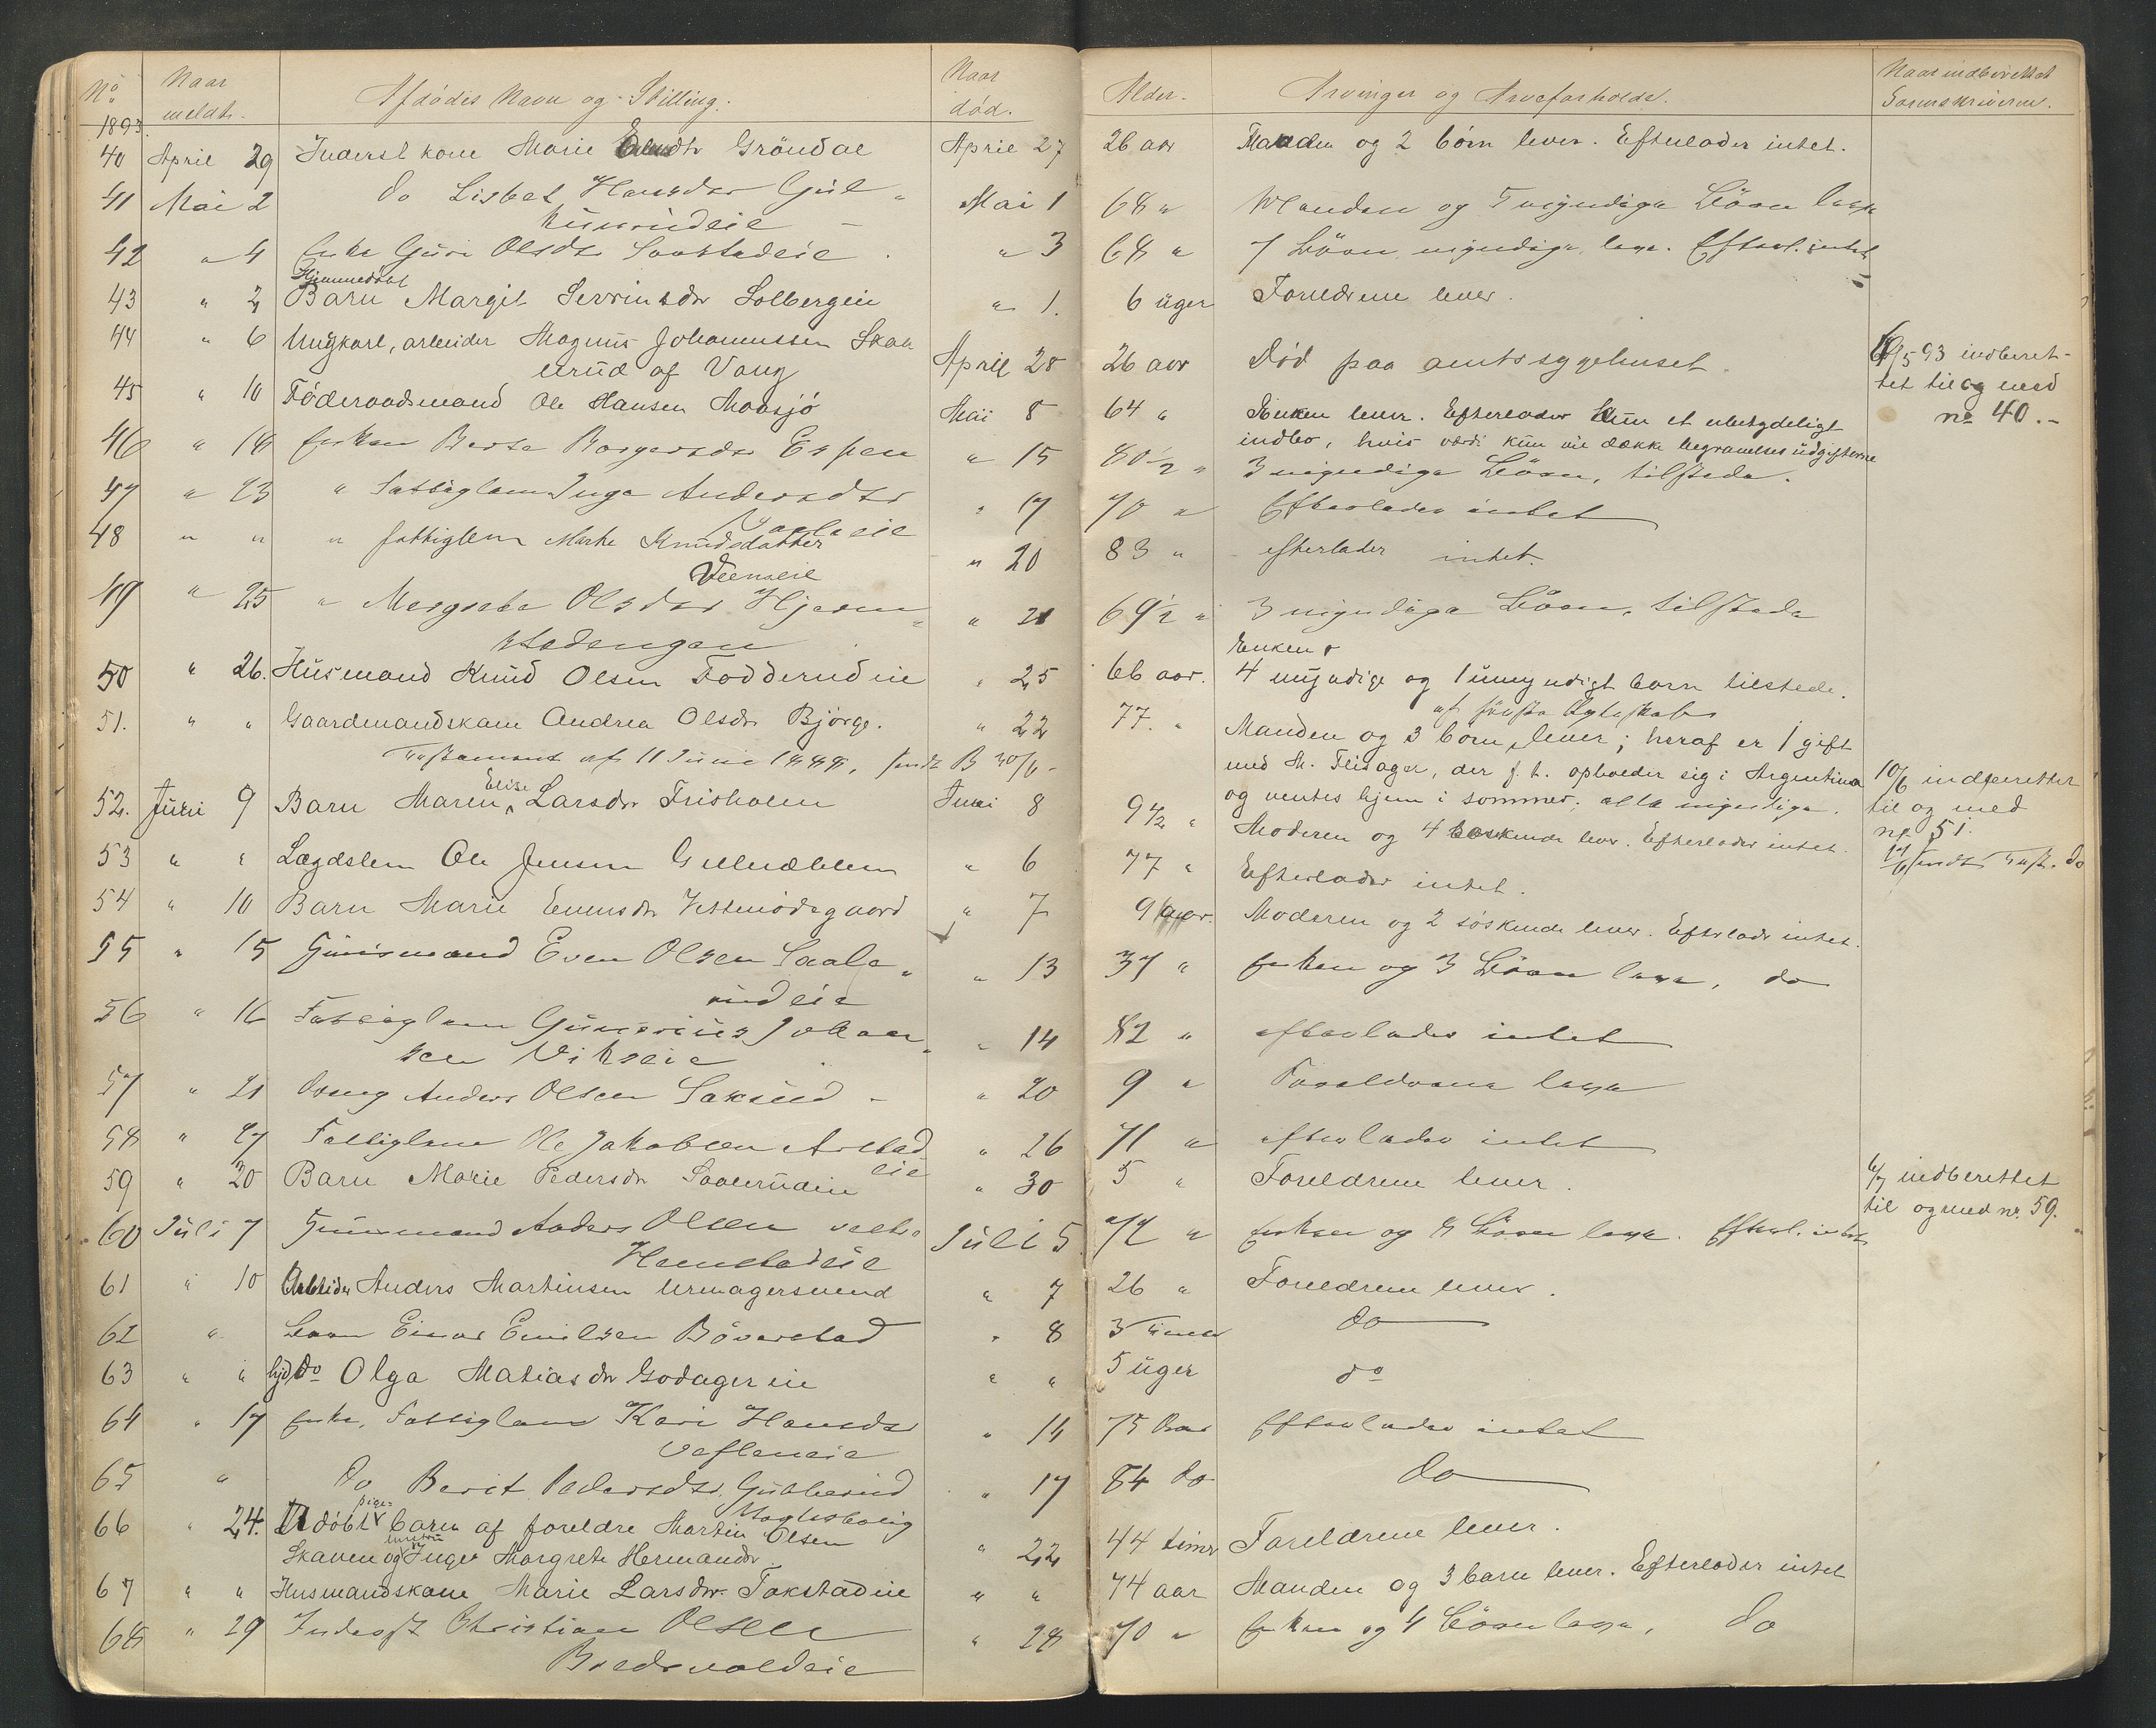 No Naar meldt. Afdødes Navn og Stilling. Naar død. Alder. Arvinger og Arveforholde. Naar indberettet Sorenskriveren.
1893.
40 April 29 Inderst kone Marie Grøndal April 27 26 aar Manden og 2 børn lever. Efterlader intet.
41 Mai 2 do Lisbet Hansdr Gul- Mai 1 68 " Manden og 5 myndige Börn leve
husrudeie
42 " 4 Enke Guri Olsdr Saastadeie " 3 68 " 7 Börn myndige, leve. Efterl. intet
Hjemmedøbt
43 " 2 Barn Margit Serrinsdr Solbergeie " 1. 6 uger Forældrene lever.
44 " 6 Ungkarl, arbeider Magnus Johannessen Skaa April 28 26 aar Død paa amtssygehuset. 6/5 93 indberet-
lerud af Vang tet til og med
45 " 10 Föderaadsmand Ole Hansen Maasjø Mai 8 64 " Enken lever. Efterlader kun et ubetydeligt no 40.-
indbo, hvis værdi kun vil dække begravelsesudgifterne
46 " 18 Enken Berte Borgersdr Espen " 15 80½ " 3 myndige Börn, tilstede.
47 " 23 " Fattiglem Inga Andersdtr " 17 70 " Efterlader intet
48 " " " fattiglem Marte Knudsdatter " 20 83 " efterlader intet.
Veenseie
49 " 25 " Margrete Olsdr Hjerm- " 21 69½ " 3 myndige Börn, tilstede
stadengen
Enken &
50 " 26. Husmand Knud Olsen Fodderudeie " 25 66 aar. 4 myndige og 1 umyndigt barn tilstede.
af første Ægteskab
51. " " Gaardmandskone Andrea Olsdr Bjørge. " 22 77. " Manden og 3 børn lever; heraf er 1 gift
Testament af 11 Juni 1888, sendt B 30/6- med M. Flisager, der f. t. opholder sig i Argentina 10/6 indberettet
og ventes hjem i sommer. alle myndige. til og med
52. Juni 9 Barn Maren Elise Larsdr Frisholm Juni 8 9½ " Moderen og 4 søskende lever. Efterlader intet. no 51.
53 " " Lægdslem Ole Jensen Gulleæblem " 6 77 " Efterlader intet.
54 " 10 Barn Marie Evensdr Vestmodegaard " 7 9 aar. Moderen og 2 søskende lever. Efterlader intet.
55 " 15 Huusmand Even Olsen Saale " 13 37 " Enken og 3 Börn leve, do
rudeie
56 " 16 Fattiglem Gunerius Johan- " 14 82 " efterlader intet
sen Vikseie
57 " 21 Dreng Anders Olsen Saksrud - " 20 9 " Forældrene leve
58 " 27 Fattiglem Ole Jakobsen Arstad " 26 71 " efterlader intet
eie
59 " 30 Barn Marie Pedersdr Saalerudeie " 30 5 " Forældrene lever. 6/7 indberettet
til og med nr. 59.
60 Juli 7 Huusmand Anders Olsen vestre Juli 5 72 " Enken og Börn leve. Efterl. intet
Hemstadeie
61 " 10 Arbeider Anders Martinsen Urmagersvend " 7 26 " Forældrene lever.
62 " Barn Einar Emilsen Böverstad " 8 3 Timer do
63 " " hjd do Olga Matiasdr Godagereie " " 5 uger do
64 " 17 Enke, Fattiglem Kari Hansdr " 14 75 Aar Efterlader intet
Vefleneie
65 " Do Berit Pedersdtr. Gubberud " 17 84 do do
66 " 24. Udøbt pige- barn af forældre Martin Olsen " 22 44 timer Forældrene lever.
Skaven og hustru Inger Margrete Hermansdr.
67 " " Husmandskone Marie Larsdr. Tokstadeie " " 74 aar Manden og 3 barn lever. Efterlader intet
68 " 29 Inderst Christian Olsen " 28 70 " Enken og 4 Börn leve, do
Bredsvoldeie